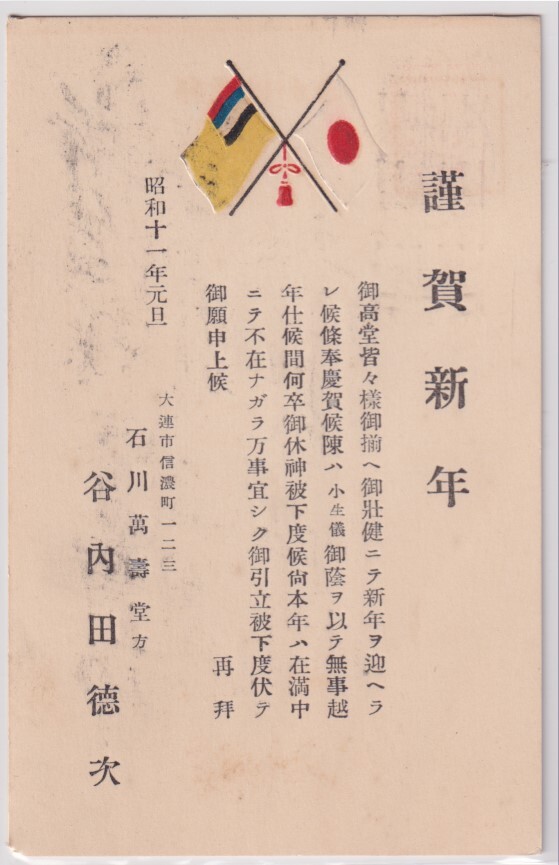 謹賀新年
御高堂皆々様御揃ヘ御壯健ニテ新年ヲ迎ヘラ
レ候條奉慶賀候陳ハ小生儀御蔭ヲ以テ無事越
年仕候間何卒御休神被下度候尙本年ハ在滿中
ニテ不在ナガラ万事宜シク御引立被下度伏テ
御願申上候 再拜
昭和十一年元旦
大連市信濃町一二三
石川萬壽堂方
谷內田德次